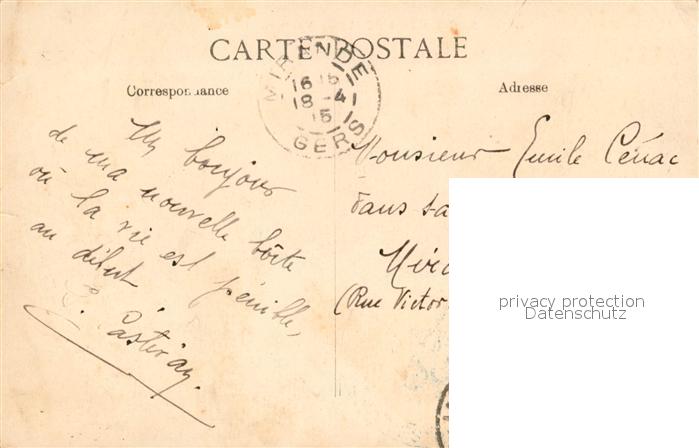 CARTE POSTALE
MIRANDE
16 15
18 -4
15
GERS
Correspondance
Adresse
Un bonjour
de ma nouvelle boîte
où la vie est pénible,
au début
Monsieur Emile Cénac
dans sa
(Rue Victor
privacy protection
Datenschutz